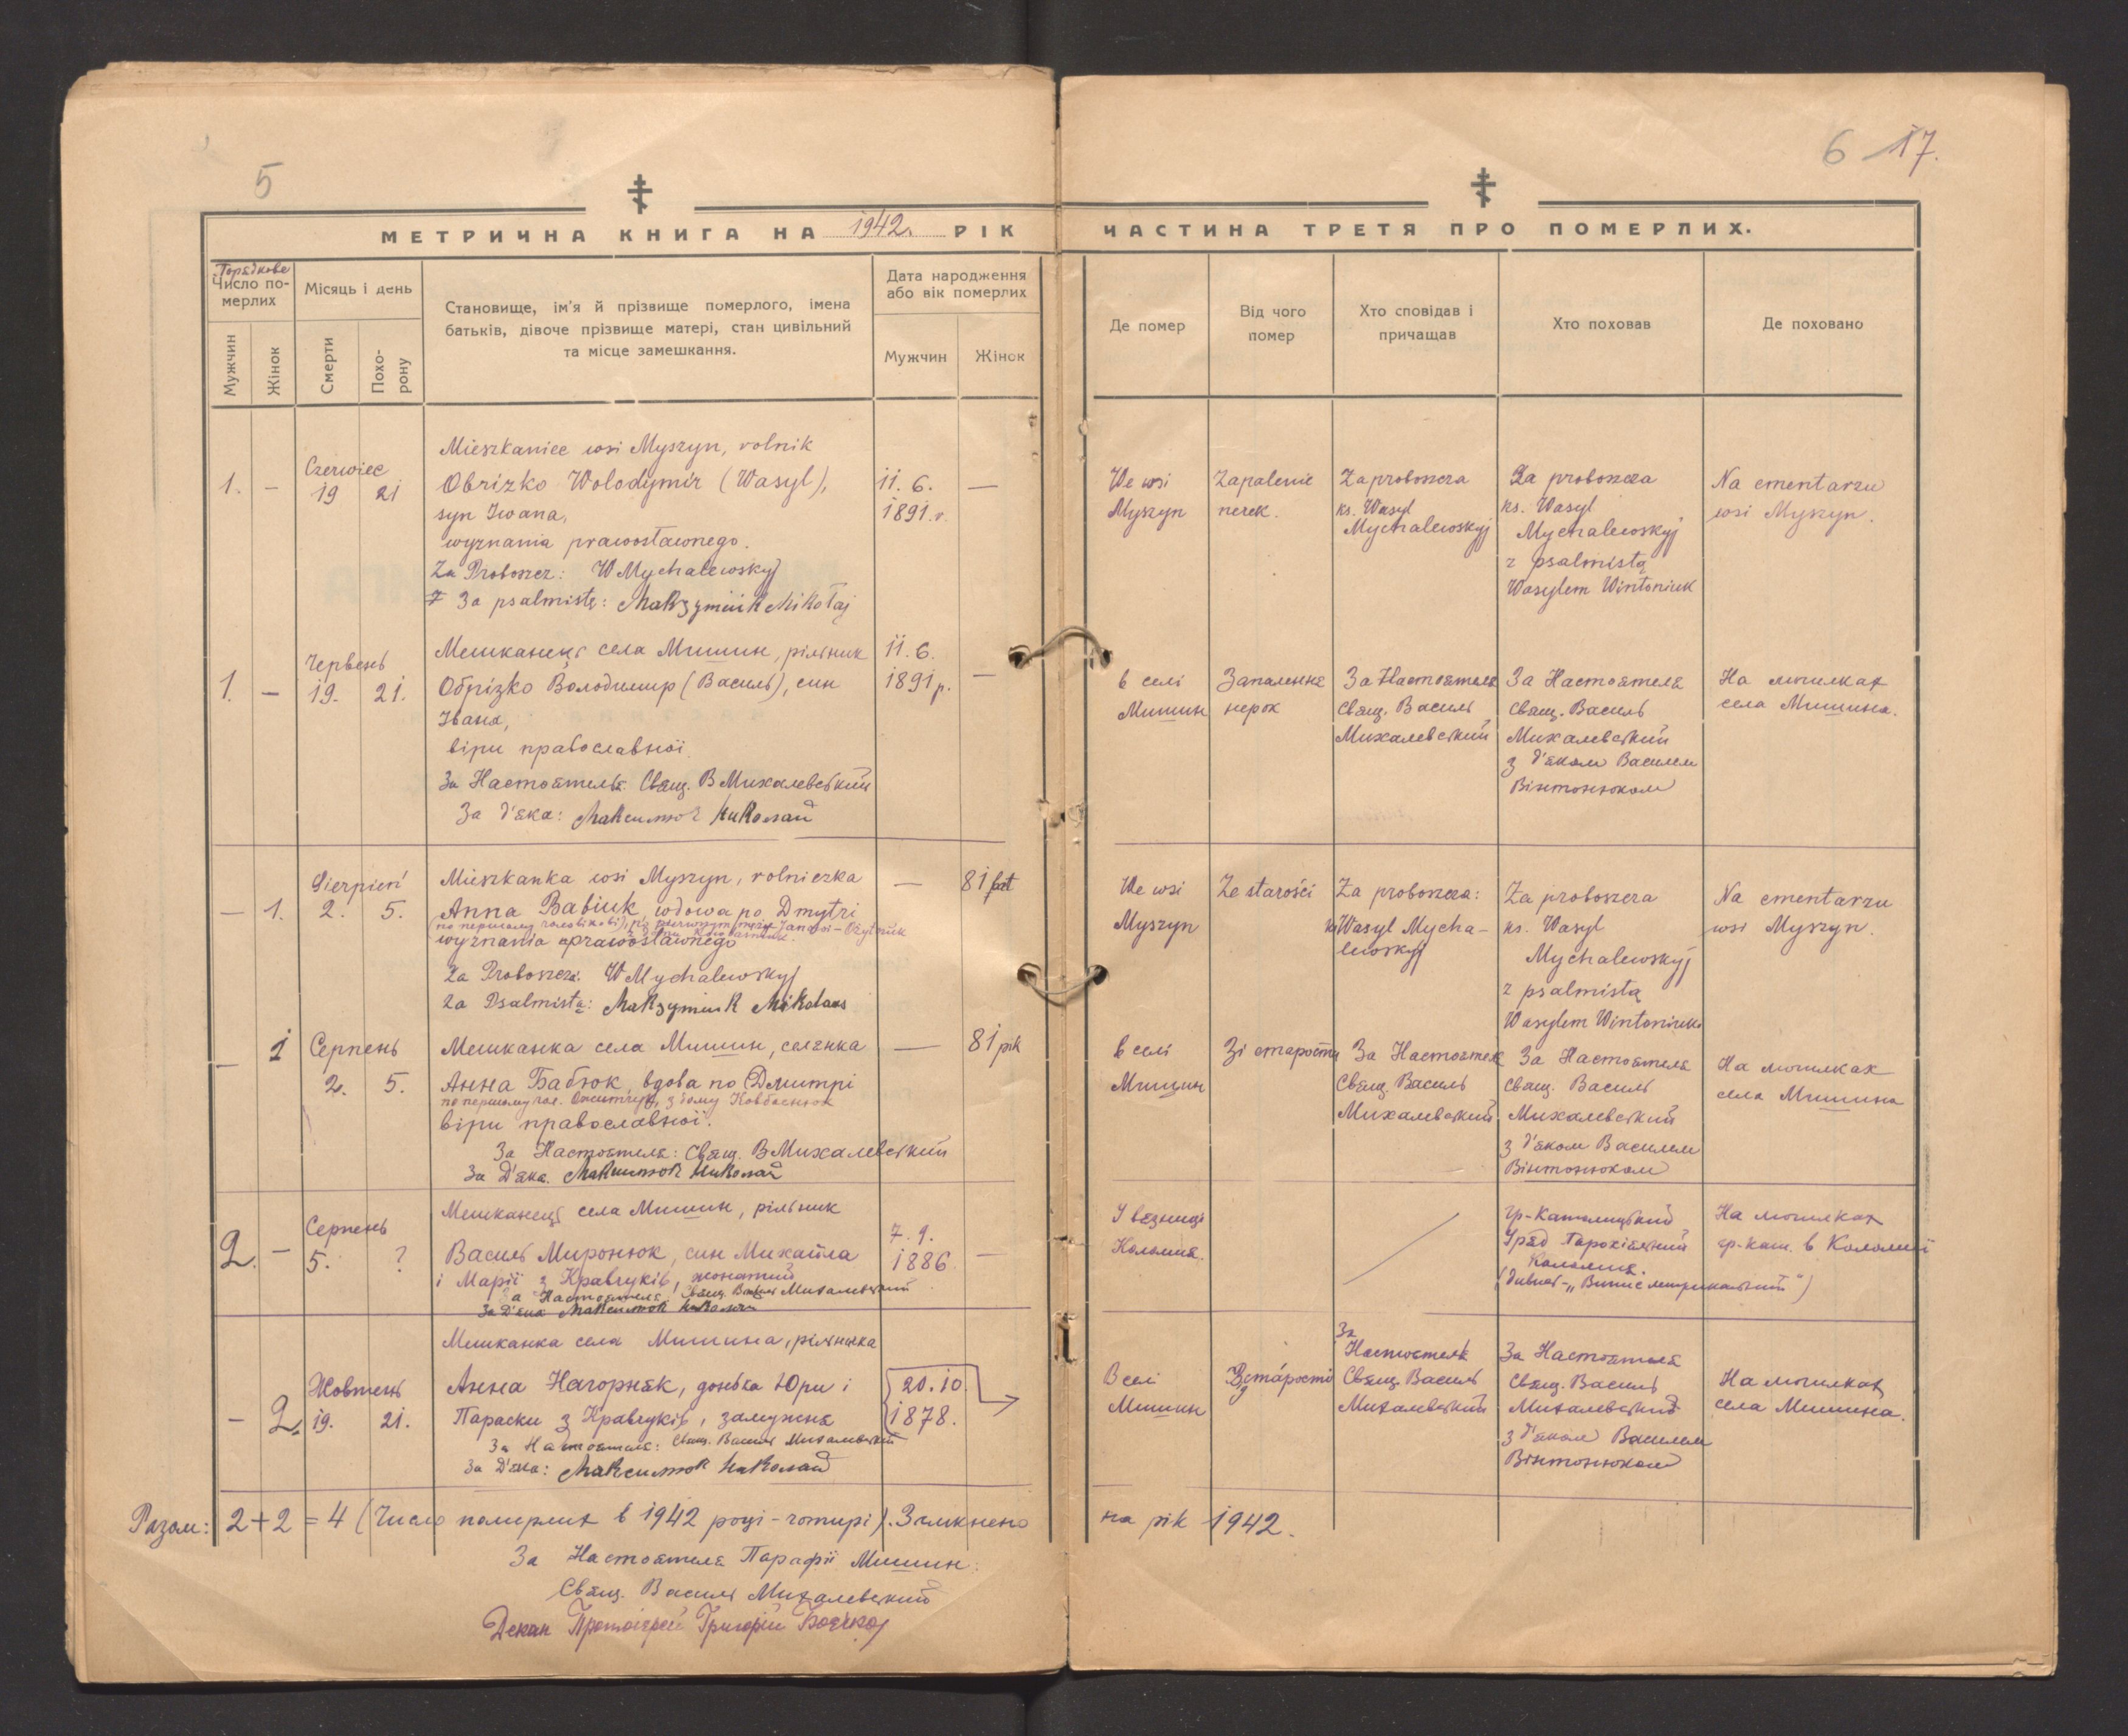 5
6 17.
МЕТРИЧНА КНИГА НА 1942. РІК
ЧАСТИНА ТРЕТЯ ПРО ПОМЕРЛИХ.
Порядкове
Число по-
мерлих
Місяць і день
Становище, ім'я й прізвище померлого, імена
батьків, дівоче прізвище матері, стан цивільний
та місце замешкання.
Дата народження
або вік померлих
Мужчин
Жінок
Смерти
Похо-
рону
Мужчин
Жінок
Де помер
Від чого
помер
Хто сповідав і
причащав
Хто поховав
Де поховано
1. –
Czerwiec
19 21
Mieszkaniec wsi Myszyn, rolnik
Obrizko Wolodymir (Wasyl),
syn Iwana,
wyznania prawosławnego.
Za Proboszcz: W Mychalewskyj
Za psalmistę: Maksymiuk Mikołaj
11. 6.
1891.r.
—
We wsi
Myszyn
Zapalenie
nerek.
Za proboszcza
ks. Wasyl
Mychalewskyj
Za proboszcza
ks. Wasyl
Mychalewskyj
z psalmistą
Wasylem Wintoniuk
Na cmentarzu
wsi Myszyn.
1. –
Червень
19. 21.
Мешканець села Мишин, рільник
Обрізко Володимир (Василь), син
Івана,
віри православної
За Настоятеля Свящ. В Михалевський
За д'яка: Максимюк Николай
11. 6.
1891 р.
—
в селі
Мишин
Запалення
нерок
За Настоятеля
Свящ. Василь
Михалевський
За Настоятеля
Свящ. Василь
Михалевський
з д'яком Василем
Вінтонюком
На могилках
села Мишина.
– 1.
Sierpień
2. 5.
Mieszkanka wsi Myszyn, rolniczka
Anna Babiuk, wdowa po Dmytri
wyznania prawosławnego
Za Proboszcza. W Mychalewskyj
Za Psalmistą: Maksymiuk Mikolaus
—
81 lat
We wsi
Myszyn
Ze starości
Za proboszcza:
ks Wasyl Mycha-
lewskyj
Za proboszcza
ks. Wasyl
Mychalewskyj
z psalmistą
Wasylem Wintoniuk
Na cmentarzu
wsi Myszyn.
– 1
Серпень
2. 5.
Мешканка села Мишин, селянка
Анна Бабюк, вдова по Дмитрі
віри православної.
За Настоятеля: Свящ. В Михалевський
За Д'яка. Максимюк Николай
—
81 рік
в селі
Мишин
Зі старости
За Настоятеля
Свящ. Василь
Михалевський
За Настоятеля
Свящ. Василь
Михалевський
з д'яком Василем
Вінтонюком
На могилках
села Мишина
2. –
Серпень
5. ?
Мешканець села Мишин, рільник
Василь Миронюк, син Михайла
і Марії з Кравчуків, жонатий
За Настоятеля: Свящ. Василь Михалевський
За Д'яка Максимюк Николай
7. 9.
1886
—
У вязниці
Коломия.
Гр-Католицький
Уряд Парохіяльний
Коломия.
(дивись-„Випис метрикальний")
На могилках
гр.-кат. в Коломиї
– 2.
Жовтень
19. 21.
Мешканка села Мишина, рільничка
Анна Нагорняк, донька Юри і
Параски з Кравчуків, замужня
За Настоятеля: Свящ. Василь Михалевський
За Д'яка: Максимюк Николай
20. 10.
1878.
В селі
Мишин
старости
За
Настоятеля
Свящ. Василь
Михалевський
За Настоятеля
Свящ. Василь
Михалевський
з д'яком Василем
Вінтонюком
На могилках
села Мишина.
Разом: 2 + 2 = 4 (Число померлих в 1942 році - чотирі). Замкнено
на рік 1942.
За Настоятеля Парафії Мишин:
Свящ. Василь Михалевський
Декан Протоієрей Григорій